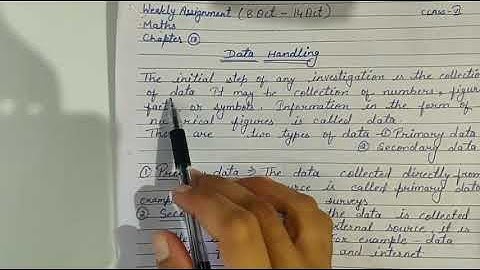 Weekly Assignment (8 Oct - 14 Oct)
Class - VI
Maths
Chapter ⑬
Data Handling
The initial step of any investigation is the collection
of data It may be collection of numbers, figur
or symbols. Information in the form of
figures is called data.
are two types of data ① Primary data
② Secondary data
① data ⇒ The data collected directly from
source is called primary data
example surveys
② the data is collected
external source, it is
For example - data
and internet